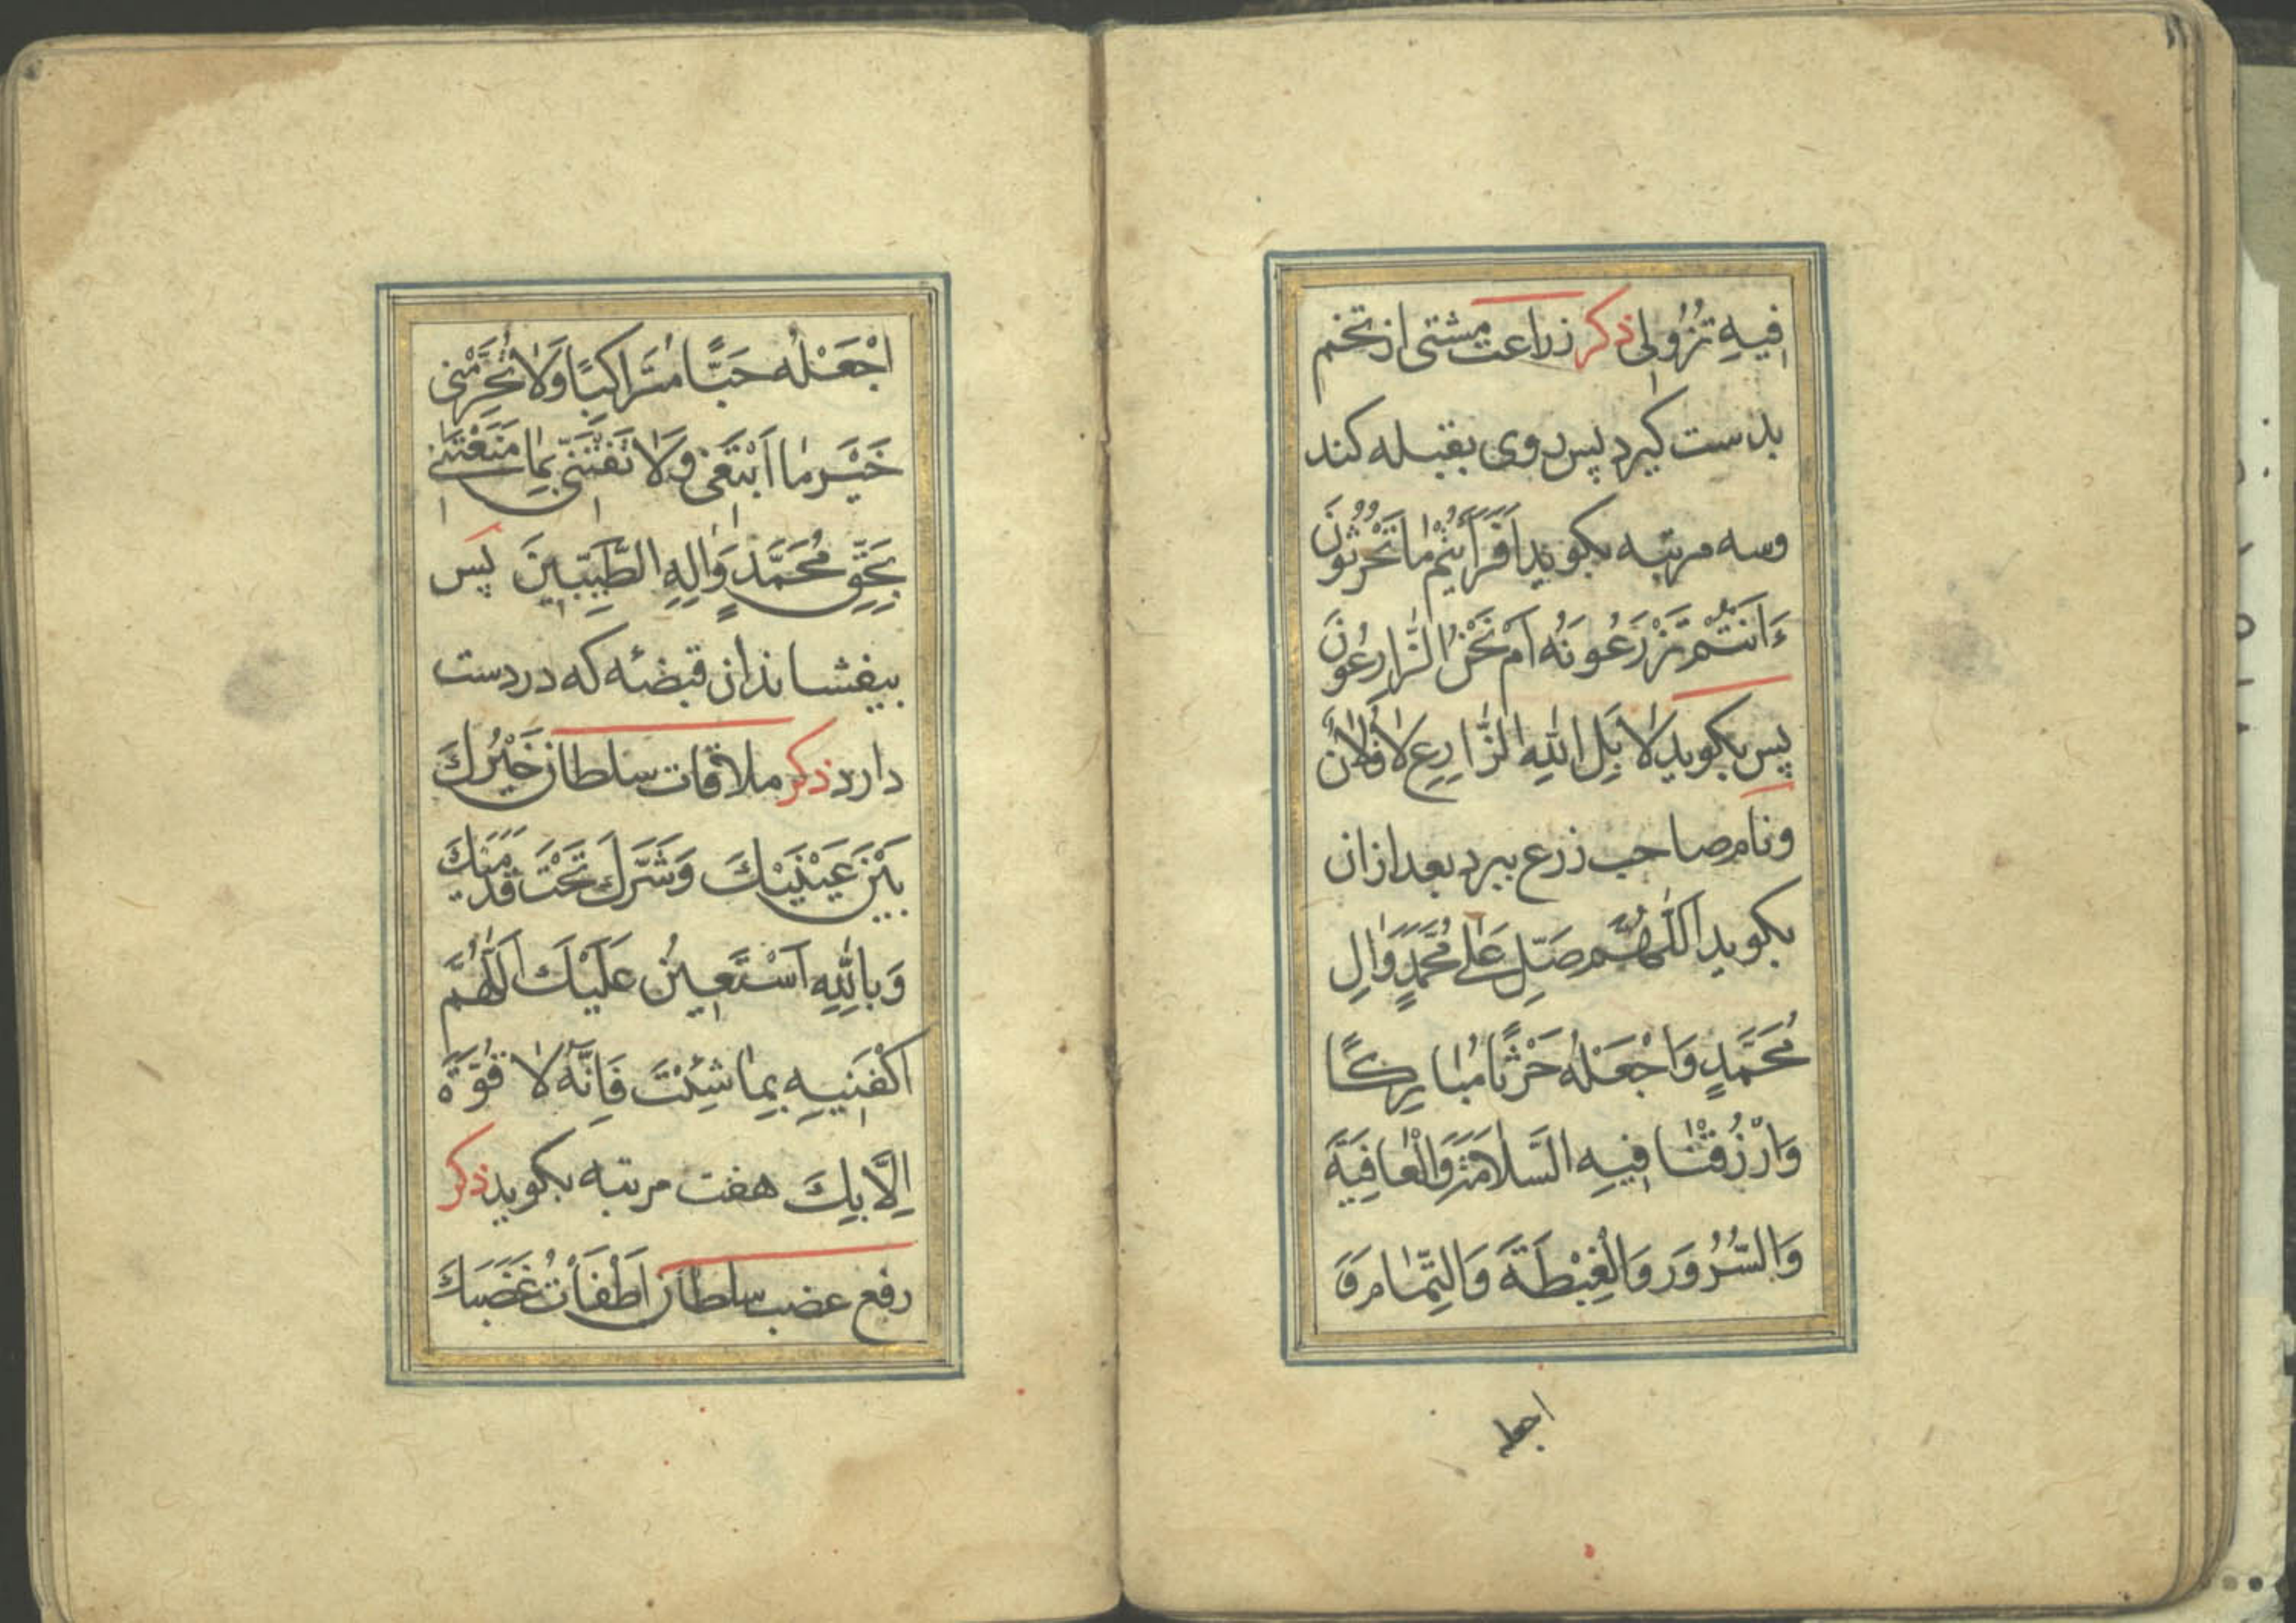 فِيهِ نُزُولِى ذكر زراعت مشتى از تخم
بدست گيرد پس روى بقبله كند
وسه مرتبه بگويد اَفَرَاَيْتُمْ مٰا تَحْرُثُونَ
ءَاَنْتُمْ تَزْرَعُونَهُ اَمْ نَحْنُ الزّٰارِعُونَ
پس بگويد لاٰ بَلِ اللّٰهِ الزّٰارِعِ لاٰ فُلاٰنُ
ونام صاحب زرع ببرد بعد ازان
بگويد اَللّٰهُمَّ صَلِّ عَلٰى مُحَمَّدٍ وَاٰلِ
مُحَمَّدٍ وَاجْعَلْهُ حَرْثًا مُبٰارِكًا
وَارْزُقْنٰا فِيهِ السَّلاٰمَةَ وَالْعٰافِيَةَ
وَالسُّرُورَ وَالْغِبْطَةَ وَالتَّمٰامَ وَ
اجعله
اجْعَلْهُ حَبًّا مُتَرٰاكِبًا وَلاٰ تُحَرِّمْنِى
خَيْرَ مٰا اَبْتَغِى وَلاٰ تَفْتِنِّى بِمٰا مَنَعْتَنِى
بِحَقِّ مُحَمَّدٍ وَاٰلِهِ الطَّيِّبِينَ پس
بيفشاند ان قبضئه كه در دست
دارد ذكر ملاقات سلطان خَيْرُكَ
بَيْنَ عَيْنَيْكَ وَشَرُّكَ تَحْتَ قَدَمَيْكَ
وَبِاللّٰهِ اَسْتَعِينُ عَلَيْكَ اَللّٰهُمَّ
اكْفِنِيهِ بِمٰا شِئْتَ فَاِنَّهُ لاٰ قُوَّةَ
اِلاَّ بِكَ هفت مرتبه بگويد ذكر
رفع غضب سلطان اَطْفَاْتُ غَضَبَكَ